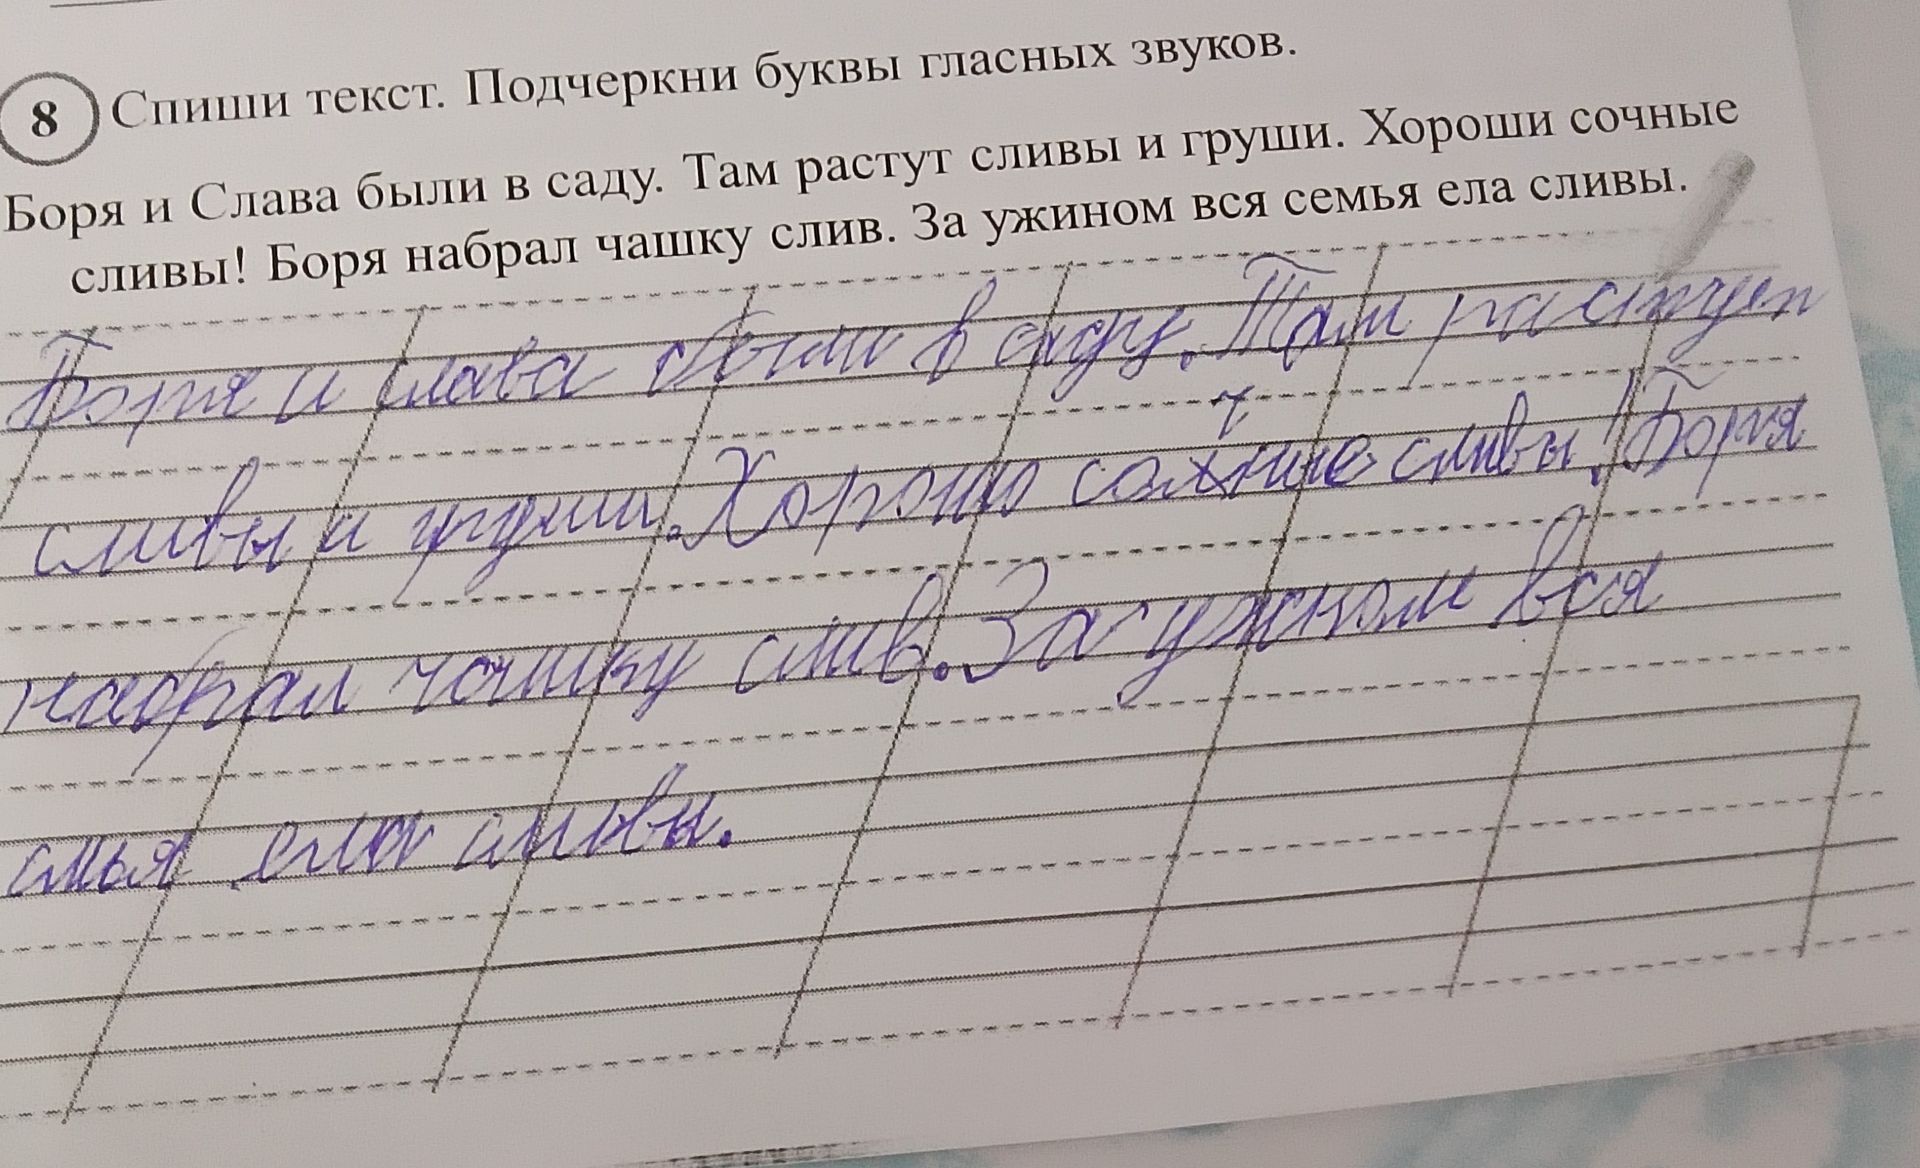 8 Спиши текст. Подчеркни буквы гласных звуков.
Боря и Слава были в саду. Там растут сливы и груши. Хороши сочные
сливы! Боря набрал чашку слив. За ужином вся семья ела сливы.
Боря и Слава были в саду. Там растут
ч
сливы и груши. Хороши сочные сливы! Боря
набрал чашку слив. За ужином вся
смья ела сливы.